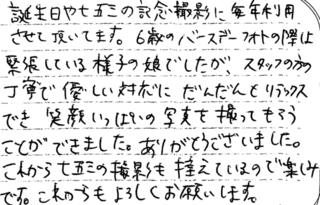 誕生日や七五三の記念撮影に毎年利用
させて頂いてます。6歳のバースデーフォトの際は
緊張している様子の娘でしたが、スタッフの方の
丁寧で優しい対応にだんだんとリラックス
でき 笑顔いっぱいの写真を撮ってもらう
ことができました。ありがとうございました。
これから七五三の撮影も控えているので楽しみ
です。これからもよろしくお願いします。